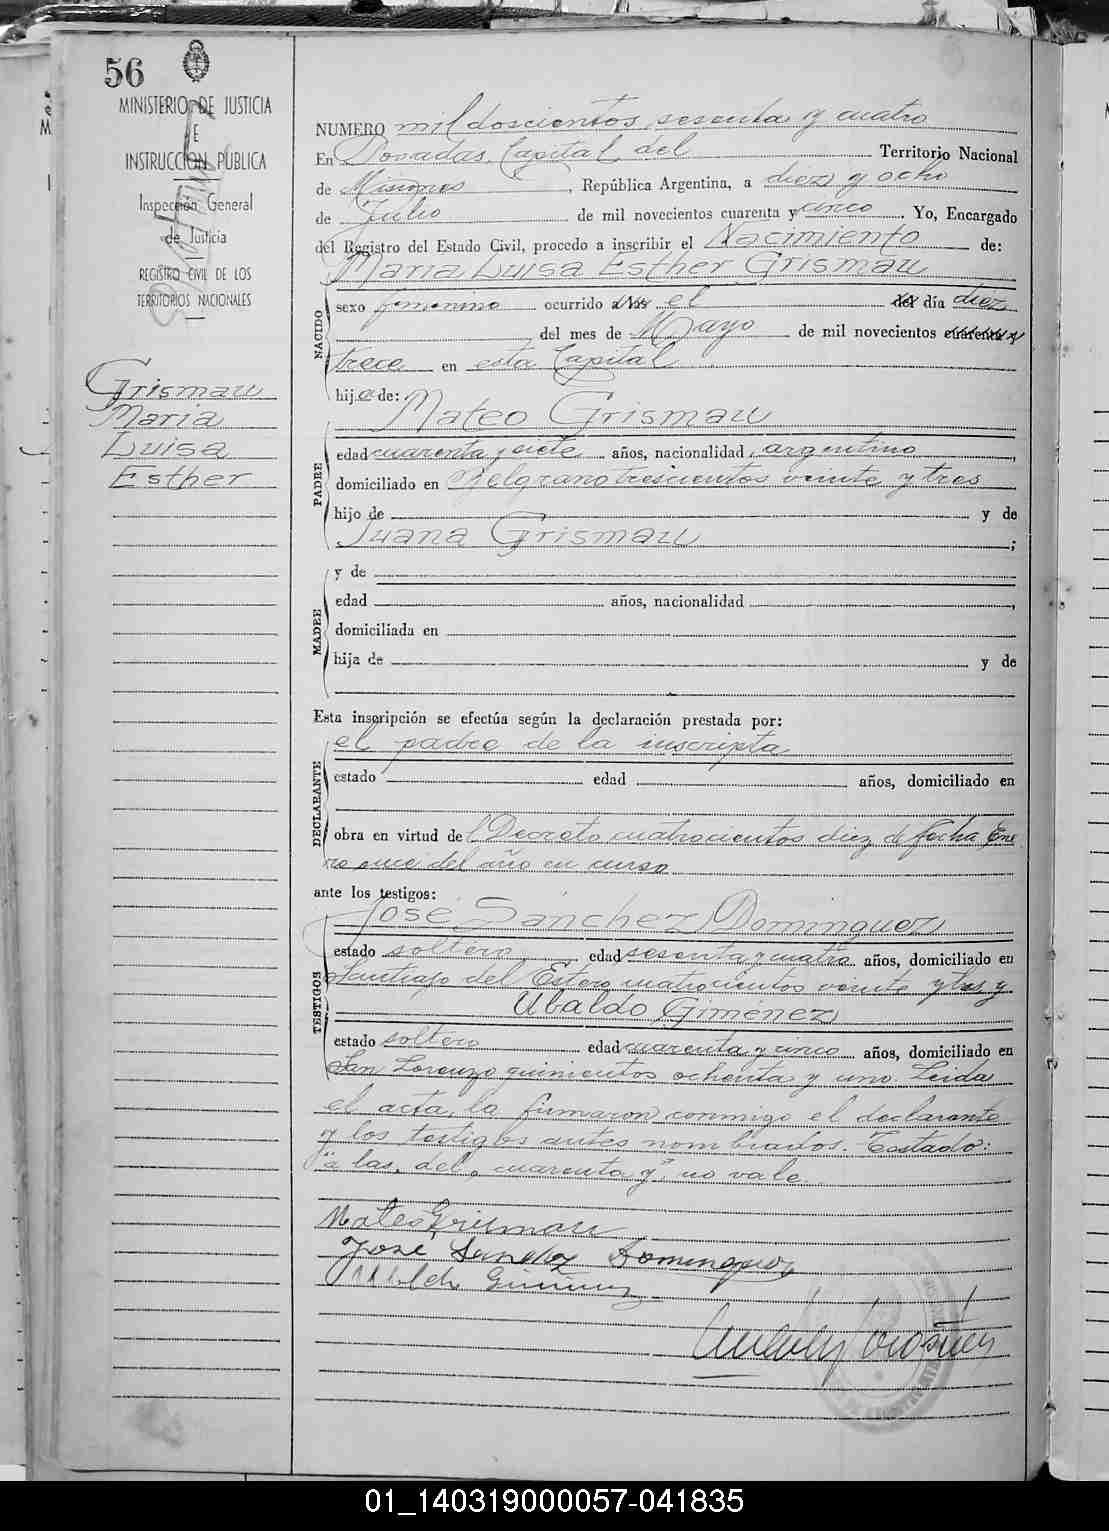 56
MINISTERIO DE JUSTICIA
E
INSTRUCCIÓN PÚBLICA
Inspección General
de Justicia
REGISTRO CIVIL DE LOS
TERRITORIOS NACIONALES
Grismau
Maria
Luisa
Esther
NUMERO mil doscientos sesenta y cuatro
En Posadas, Capital del Territorio Nacional
de Misiones, República Argentina, a diez y ocho
de Julio de mil novecientos cuarenta y cinco. Yo, Encargado
del Registro del Estado Civil, procedo a inscribir el Nacimiento de:
Maria Luisa Esther Grismau
NACIDO
sexo femenino ocurrido a las el del día diez
del mes de Mayo de mil novecientos cuarenta y
trece en esta Capital
hija de:
Mateo Grismau
PADRE
edad cuarenta y siete años, nacionalidad argentino,
domiciliado en Belgrano trescientos veinte y tres
hijo de y de
Juana Grismau;
MADRE
y de
edad años, nacionalidad,
domiciliada en
hija de y de
Esta inscripción se efectúa según la declaración prestada por:
el padre de la inscripta
DECLARANTE
estado edad años, domiciliado en
obra en virtud del Decreto cuatrocientos diez de fecha Ene
ro once del año en curso
ante los testigos:
José Sánchez Dominguez
TESTIGOS
estado soltero edad sesenta y cuatro años, domiciliado en
Santiago del Estero cuatrocientos veinte y tres y
Ubaldo Giménez
estado soltero edad cuarenta y cinco años, domiciliado en
San Lorenzo quinientos ochenta y uno. Leida
el acta, la firmaron conmigo el declarante
y los testigos antes nombrados. Testado:
"a las, del, cuarenta y" no vale.
Mateo Grismau
José Sanchez Dominguez
Ubaldo Gimenez
01_140319000057-041835